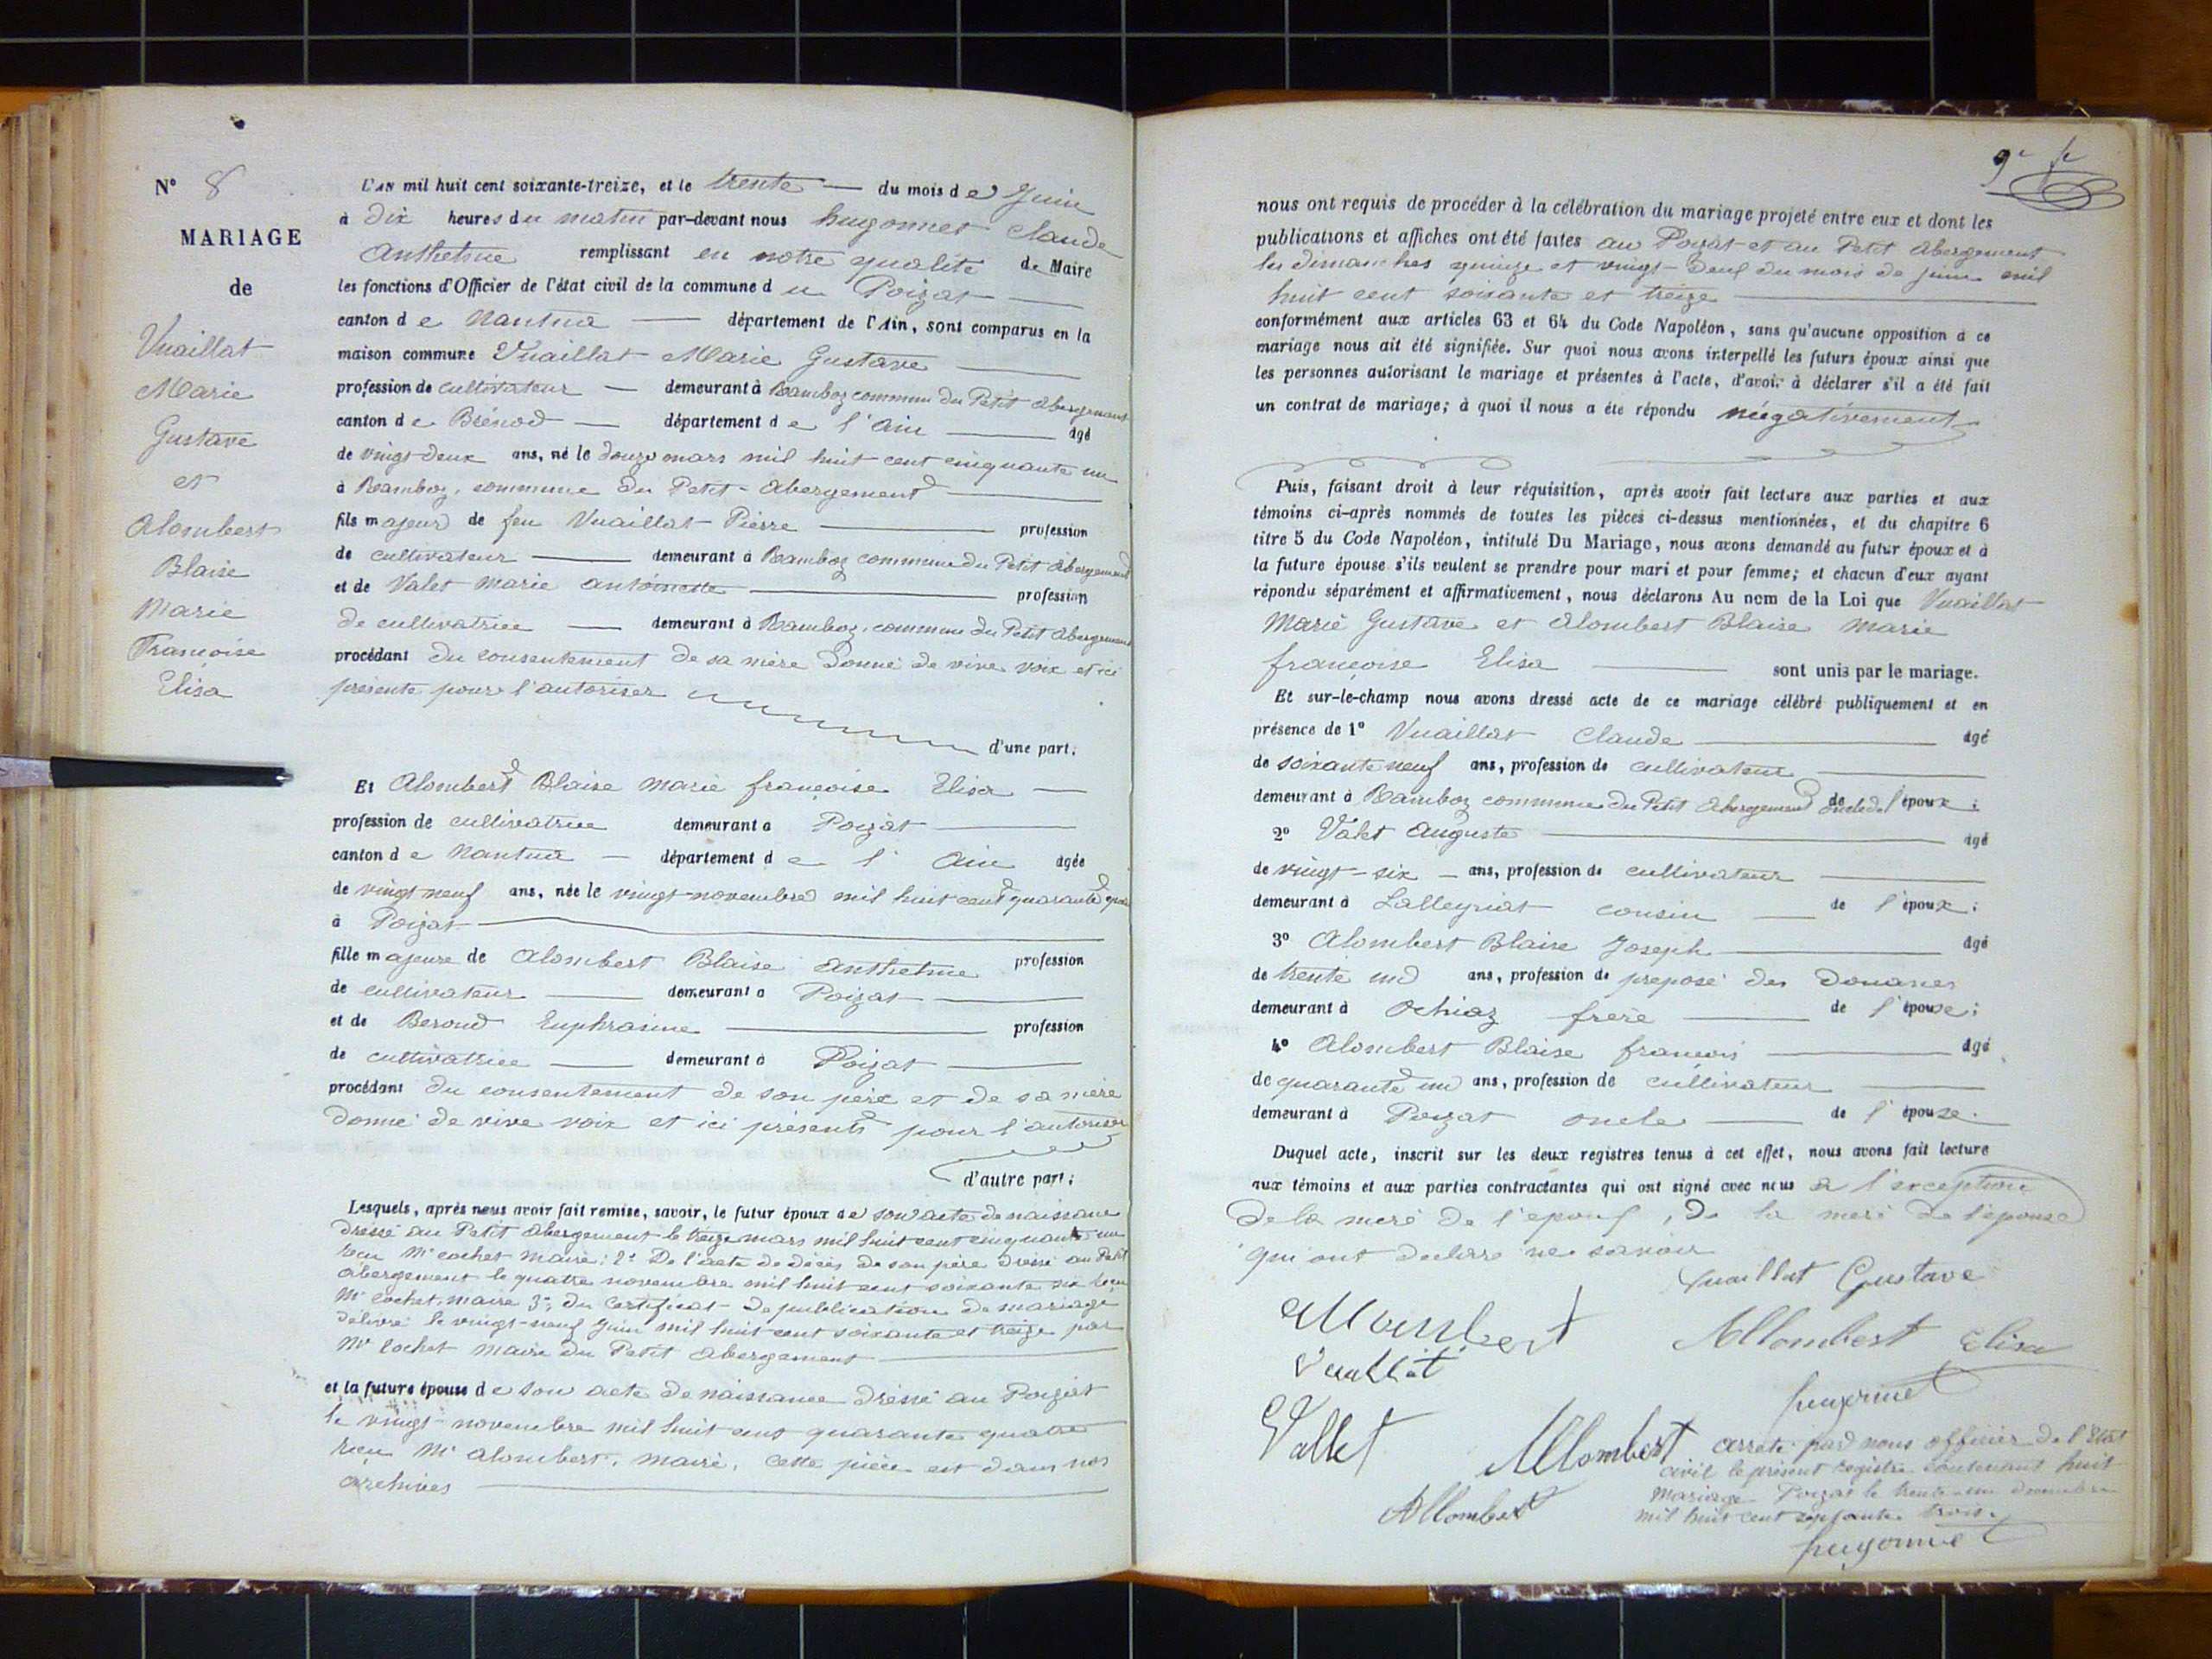 N° 8
MARIAGE
de
Vuaillat
Marie
Gustave
et
Alombert
Blaise
Marie
Françoise
Elisa
L'AN mil huit cent soixante-treize, et le trente du mois de Juin
à dix heures du matin par-devant nous hugonnet Claude
Anthelme remplissant en notre qualité de Maire
les fonctions d'Officier de l'état civil de la commune du Poizat
canton de Nantua département de l'Ain, sont comparus en la
maison commune Vuaillat Marie Gustave
profession de cultivateur demeurant à Ramboz commune du Petit Abergement
canton de Brénod département de l'Ain âgé
de vingt-deux ans, né le douze mars mil huit cent cinquante un
à Ramboz, commune du Petit-Abergement
fils majeur de feu Vuaillat Pierre profession
de cultivateur demeurant à Ramboz commune du Petit Abergement
et de Valet Marie antoinette profession
de cultivatrice demeurant à Ramboz, commune du Petit Abergement
procédant du consentement de sa mère donné de vive voix et ici
présente pour l'autoriser
d'une part;
Et Alombert Blaise Marie françoise Elisa
profession de cultivatrice demeurant à Poizat
canton de Nantua département de l'Ain âgée
de vingt neuf ans, née le vingt-novembre mil huit cent quarante quatre
à Poizat
fille majeure de Alombert Blaise Anthelme profession
de cultivateur demeurant à Poizat
et de Beroud Euphrasine profession
de cultivatrice demeurant à Poizat
procédant du consentement de son père et de sa mère
donné de vive voix et ici présents pour l'autoriser
d'autre part;
Lesquels, après nous avoir fait remise, savoir, le futur époux de son acte de naissance
dressé au Petit Abergement le treize mars mil huit cent cinquante un
reçu Mr cochet maire; 2° De l'acte de décès de son père dressé au Petit
Abergement le quatre novembre mil huit cent soixante six reçu
Mr cochet, maire 3°, du certificat de publication de mariage
délivré le vingt-neuf Juin mil huit cent soixante et treize par
Mr cochet maire du Petit Abergement
et la future épouse de son acte de naissance dressé au Poizat
le vingt novembre mil huit cent quarante quatre
reçu Mr alombert, maire, cette pièce est dans nos
archives
9e
nous ont requis de procéder à la célébration du mariage projeté entre eux et dont les
publications et affiches ont été faites au Poizat et au Petit Abergement
les dimanches quinze et vingt-deux du mois de juin mil
huit cent soixante et treize
conformément aux articles 63 et 64 du Code Napoléon, sans qu'aucune opposition à ce
mariage nous ait été signifiée. Sur quoi nous avons interpellé les futurs époux ainsi que
les personnes autorisant le mariage et présentes à l'acte, d'avoir à déclarer s'il a été fait
un contrat de mariage; à quoi il nous a été répondu négativement
Puis, faisant droit à leur réquisition, après avoir fait lecture aux parties et aux
témoins ci-après nommés de toutes les pièces ci-dessus mentionnées, et du chapitre 6
titre 5 du Code Napoléon, intitulé Du Mariage, nous avons demandé au futur époux et à
la future épouse s'ils veulent se prendre pour mari et pour femme; et chacun d'eux ayant
répondu séparément et affirmativement, nous déclarons Au nom de la Loi que Vuaillat
Marie Gustave et Alombert Blaise Marie
françoise Elisa sont unis par le mariage.
Et sur-le-champ nous avons dressé acte de ce mariage célébré publiquement et en
présence de 1° Vuaillat Claude âgé
de soixante neuf ans, profession de cultivateur
demeurant à Ramboz commune du Petit Abergement oncle de l'époux;
2° Valet Auguste âgé
de vingt-six ans, profession de cultivateur
demeurant à Lalleyriat cousin de l'époux;
3° Alombert Blaise Joseph âgé
de trente un ans, profession de préposé des Douanes
demeurant à Ochiaz frère de l'épouse;
4° Alombert Blaise françois âgé
de quarante un ans, profession de cultivateur
demeurant à Poizat oncle de l'épouse.
Duquel acte, inscrit sur les deux registres tenus à cet effet, nous avons fait lecture
aux témoins et aux parties contractantes qui ont signé avec nous à l'exception
de la mere de l'epoux, de la mere de l'epouse
qui ont declare ne savoir
Vuaillat Gustave
Allombert
Allombert Elisa
Vuaillat
hugonnet
Vallet
Allombert
Allombert
arrêté par nous officier de l'État
civil le présent registre contenant huit
mariage Poizat le trente-un decembre
mil huit cent septante trois.
hugonnet